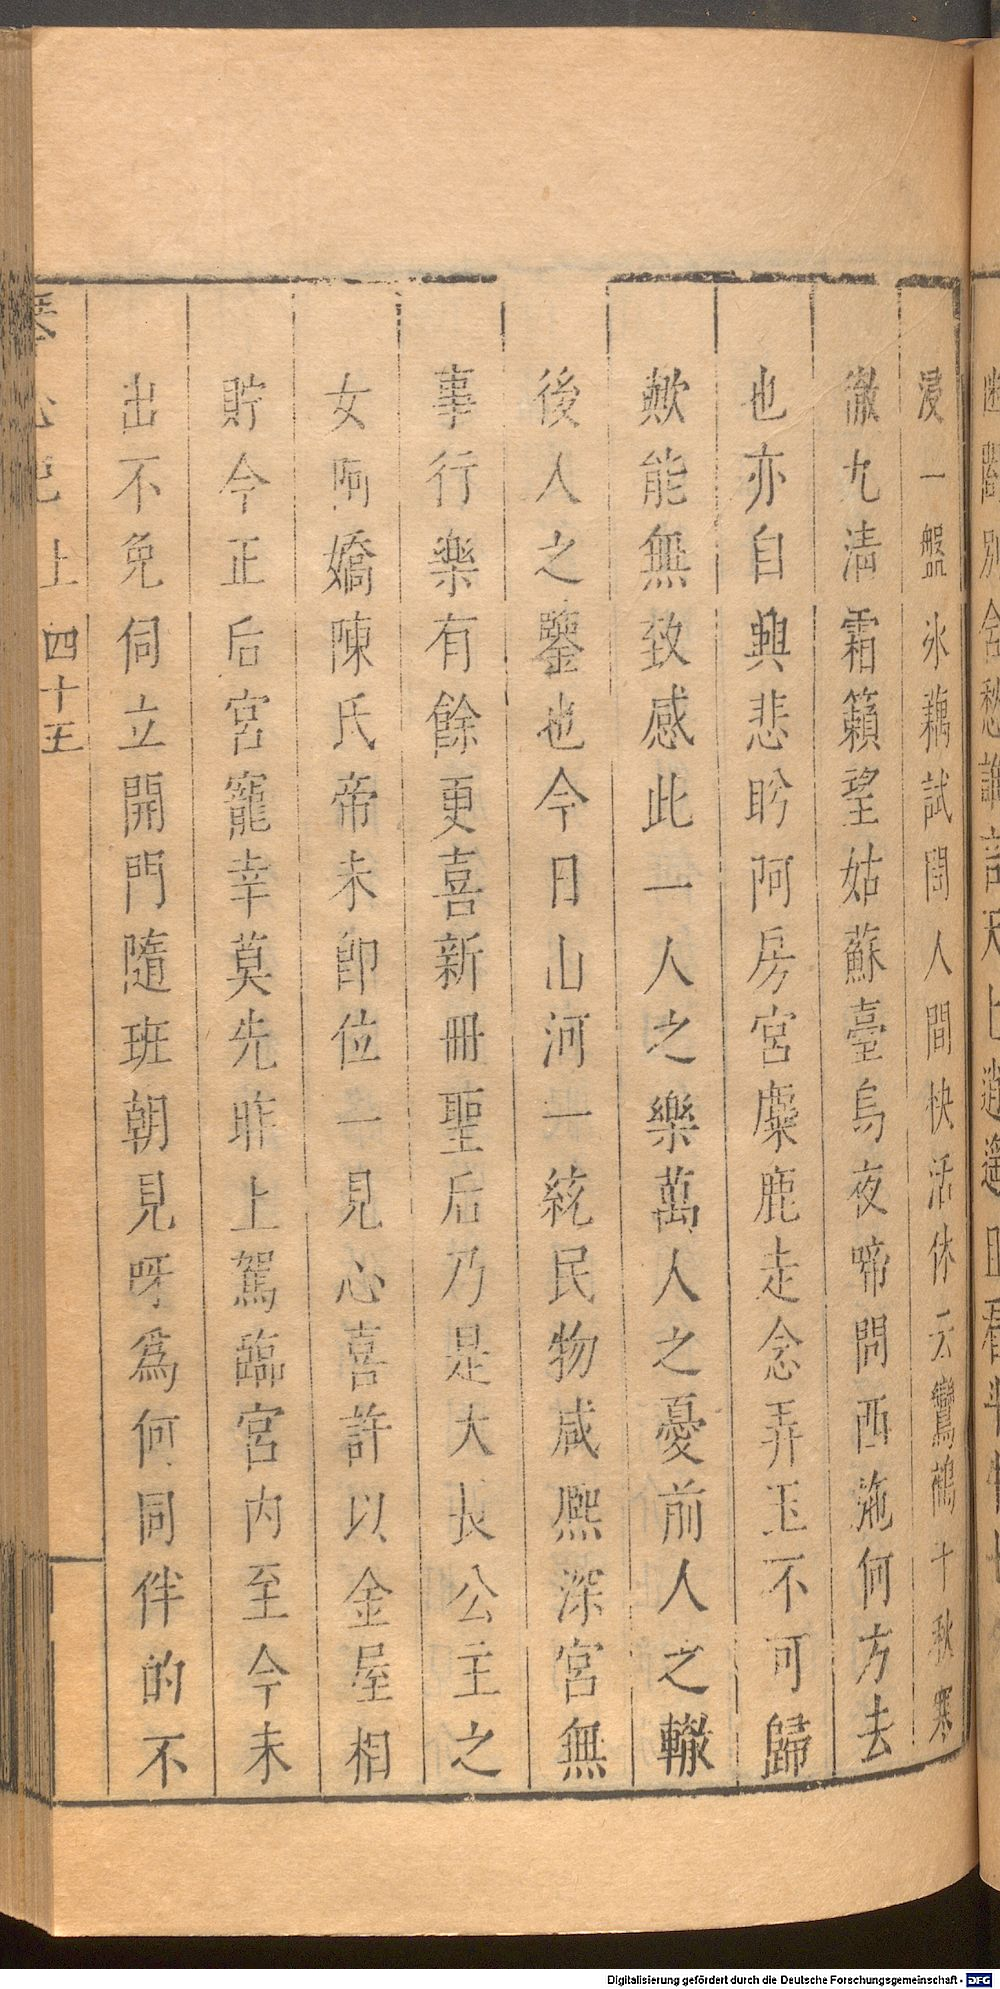 浸一盤氷藕試問人間快活休云鸞鶴十秋寒
徹九淸霜籟望姑蘇臺烏夜啼問西施何方去
也亦自興悲盻阿房宮麋鹿走念弄玉不可歸
歟能無致感此一人之樂萬人之憂前人之轍
後人之鑒也今日山河一統民物咸熈深宮無
事行樂有餘更喜新冊聖后乃是大長公主之
女阿嬌陳氏帝未卽位一見心喜許以金屋相
貯今正后宮寵幸莫先昨上駕臨宮內至今未
出不免伺立開門隨班朝見呀爲何同伴的不
上 四十五
Digitalisierung gefördert durch die Deutsche Forschungsgemeinschaft - DFG